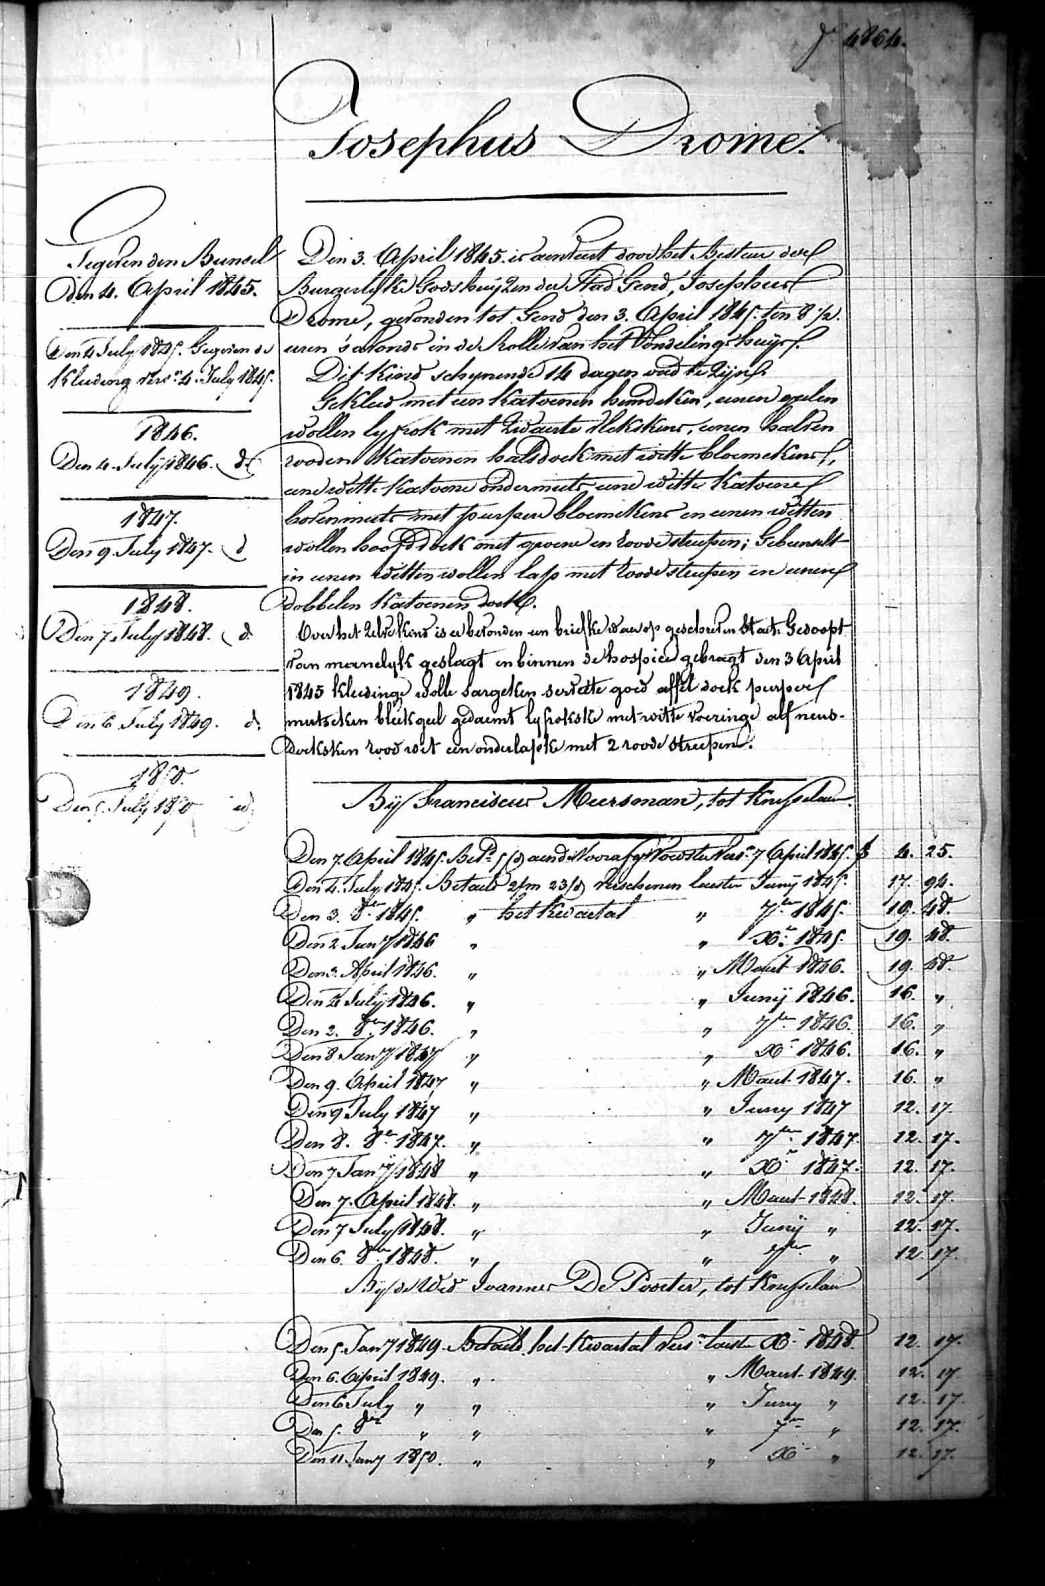 4864.
Josephus Drome.
Gegeven den Bunsel
den 4. April 1845.
Den 4 July 1845. Gegeven de
kleding vers. 4. July 1845.
1846.
Den 4. July 1846. d
1847.
Den 9. July 1847. d
1848.
Den 7. July 1848. d.
1849.
Den 6 July 1849. d.
1850.
Den 5 July 1850 id
Den 3. April 1845. is aenveert door het Bestuer der
Burgerlyke Godshuyzen der Stad Gend, Josephus
Drome, gevonden tot Gend den 3. April 1845. ten 8 1/2.
uren s'avonds in de Rolle van het Vondelinge huys.
Dit kind schynende 14 dagen oud te zyn
Gekleed met een katoenen hemdeken, eenen
wollen lyfrok met zwarte vlekskens, eenen halven
rooden katoenen halsdoek met witte bloemekens,
eene witte katoene ondermuts eene witte katoene
bovenmuts met purpere bloemekens en eenen witten
wollen hoofddoek met groene en roode streepen; Gebunselt
in eenen witten wollen lap met roode streepen en eenen
dobbelen katoenen doek.
Over het zelve kind is er bevonden een briefke waer op geschreven staet: Gedoopt
van mannelyk geslagt en binnen de hospice gebragt den 3 April
1845 kleedinge wolle sargeken servette goed doek purper
mutseken bleik geel gedaemt lyfrokske met witte voeringe alf neus-
doeksken rood wit een onderlapke met 2 roode streepen.
By Franciscus Meersman, tot Kruyshem
Den 7 April 1845. Bet. aen d. Vooraf gt. Voedster vers. 7 April 1845. f 4. 25.
Den 4. July 1845. Betaeld 2/m 23/d verschenen laesten Juny 1845. 17. 94.
Den 3. 8er. 1845. " het kwartal " 7ber 1845. 19. 48.
Den 2 Jany 1846 " " Xr. 1845. 19. 48.
Den 3. April 1846. " " Maert 1846. 19. 48.
Den 4 July 1846. " " Juny 1846. 16. "
Den 2. 8er. 1846. " " 7ber 1846. 16. "
Den 8 Jany 1847 " " Xr 1846. 16. "
Den 9. April 1847 " " Maert 1847. 16. "
Den 9 July 1847 " " Juny 1847 12. 17.
Den 8. 8er 1847. " " 7ber 1847. 12. 17.
Den 7 Jany 1848 " " Xr 1847. 12. 17.
Den 7. April 1848. " " Maert 1848. 12. 17.
Den 7 July 1848. " " Juny " 12. 17.
Den 6. 8er 1848. " " 7ber " 12. 17.
By de Wed Joannes De Pooter, tot Kruyshem
Den 5 Jany 1849. Betaeld het kwartal vers. laesten Xr 1848. 12. 17.
Den 6. April 1849. " " Maert 1849. 12. 17
Den 6 July " " " Juny " 12. 17
Den 5. 8er " " " 7ber " 12. 17.
Den 11 Jany 1850. " " Xr " 12. 17.